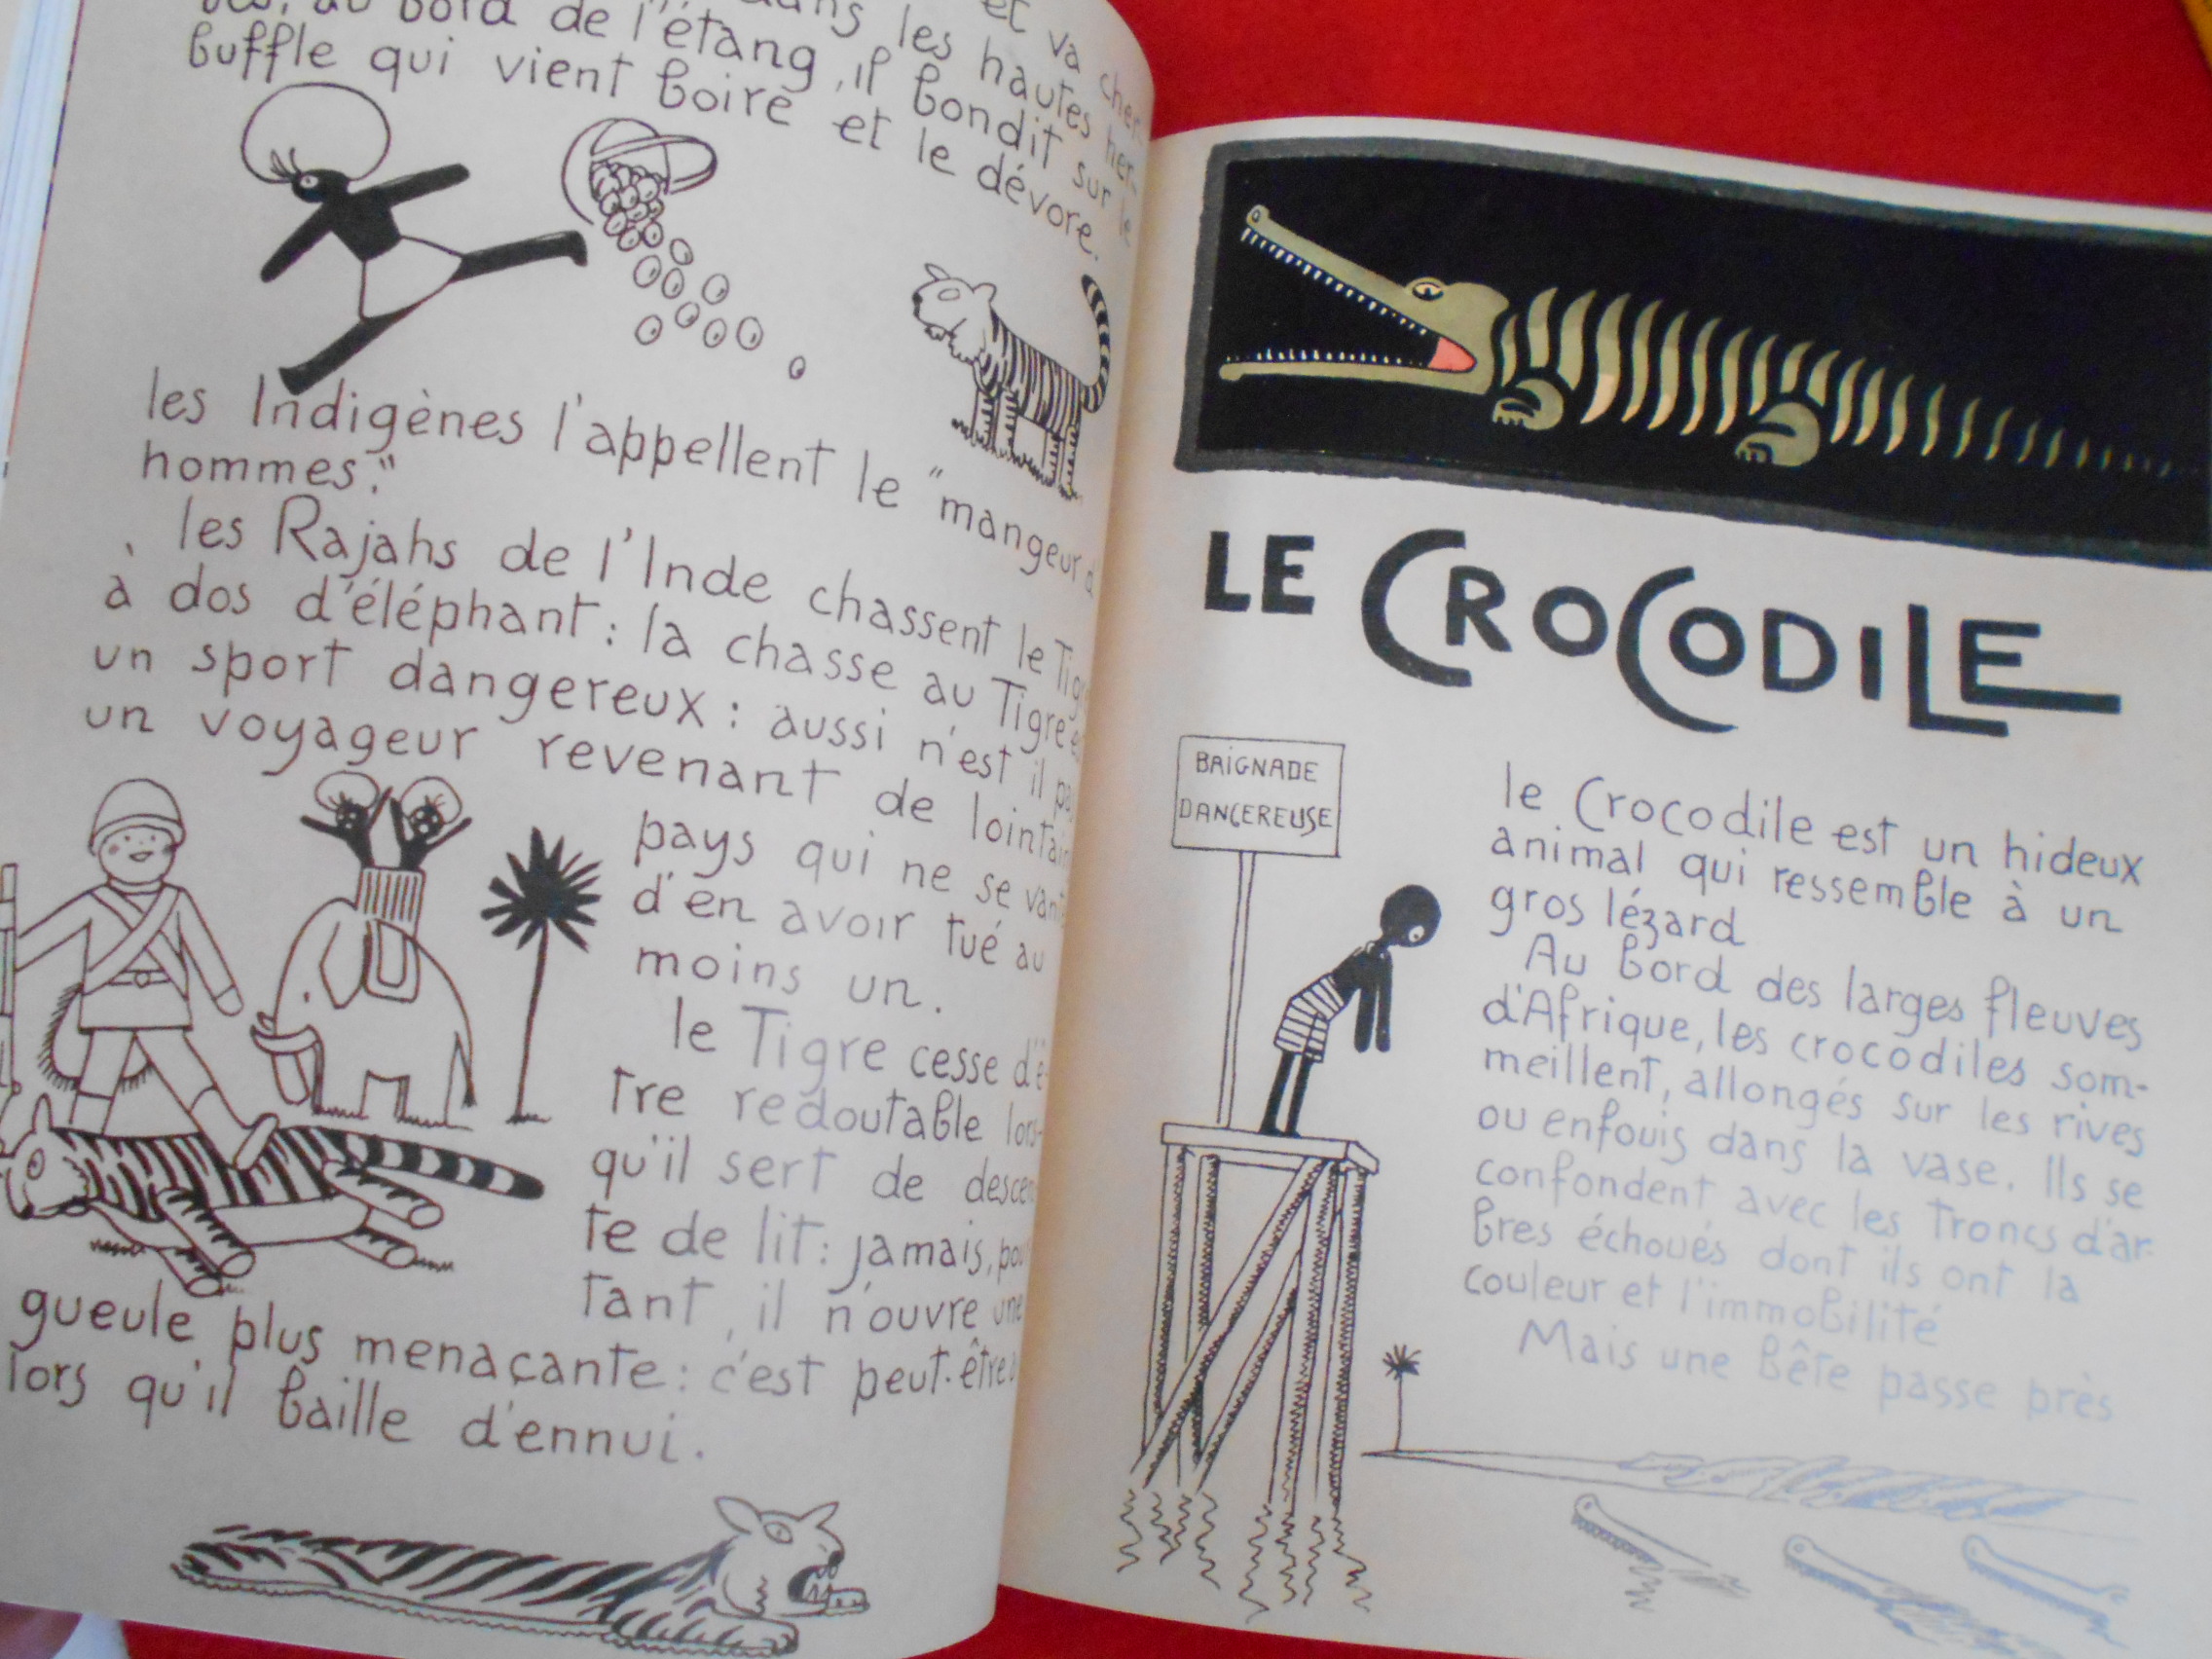 au bord de l'étang, il bondit sur le
buffle qui vient boire et le dévore.
dans les hautes her-
et va cher
les Indigènes l'appellent le "mangeur d'
hommes."
les Rajahs de l'Inde chassent le Tigre
à dos d'éléphant: la chasse au Tigre
un sport dangereux: aussi n'est il pas
un voyageur revenant de lointains
pays qui ne se vante
d'en avoir tué au
moins un.
le Tigre cesse d'ê-
tre redoutable lors-
qu'il sert de descen
te de lit: jamais, pour
tant, il n'ouvre une
gueule plus menaçante: c'est peut-être
lors qu'il baille d'ennui.
LE CROCODILE
BAIGNADE
DANGEREUSE
le Crocodile est un hideux
animal qui ressemble à un
gros lézard
Au bord des larges fleuves
d'Afrique, les crocodiles som-
meillent, allongés sur les rives
ou enfouis dans la vase. Ils se
confondent avec les troncs d'ar-
bres échoués dont ils ont la
couleur et l'immobilité
Mais une bête passe près